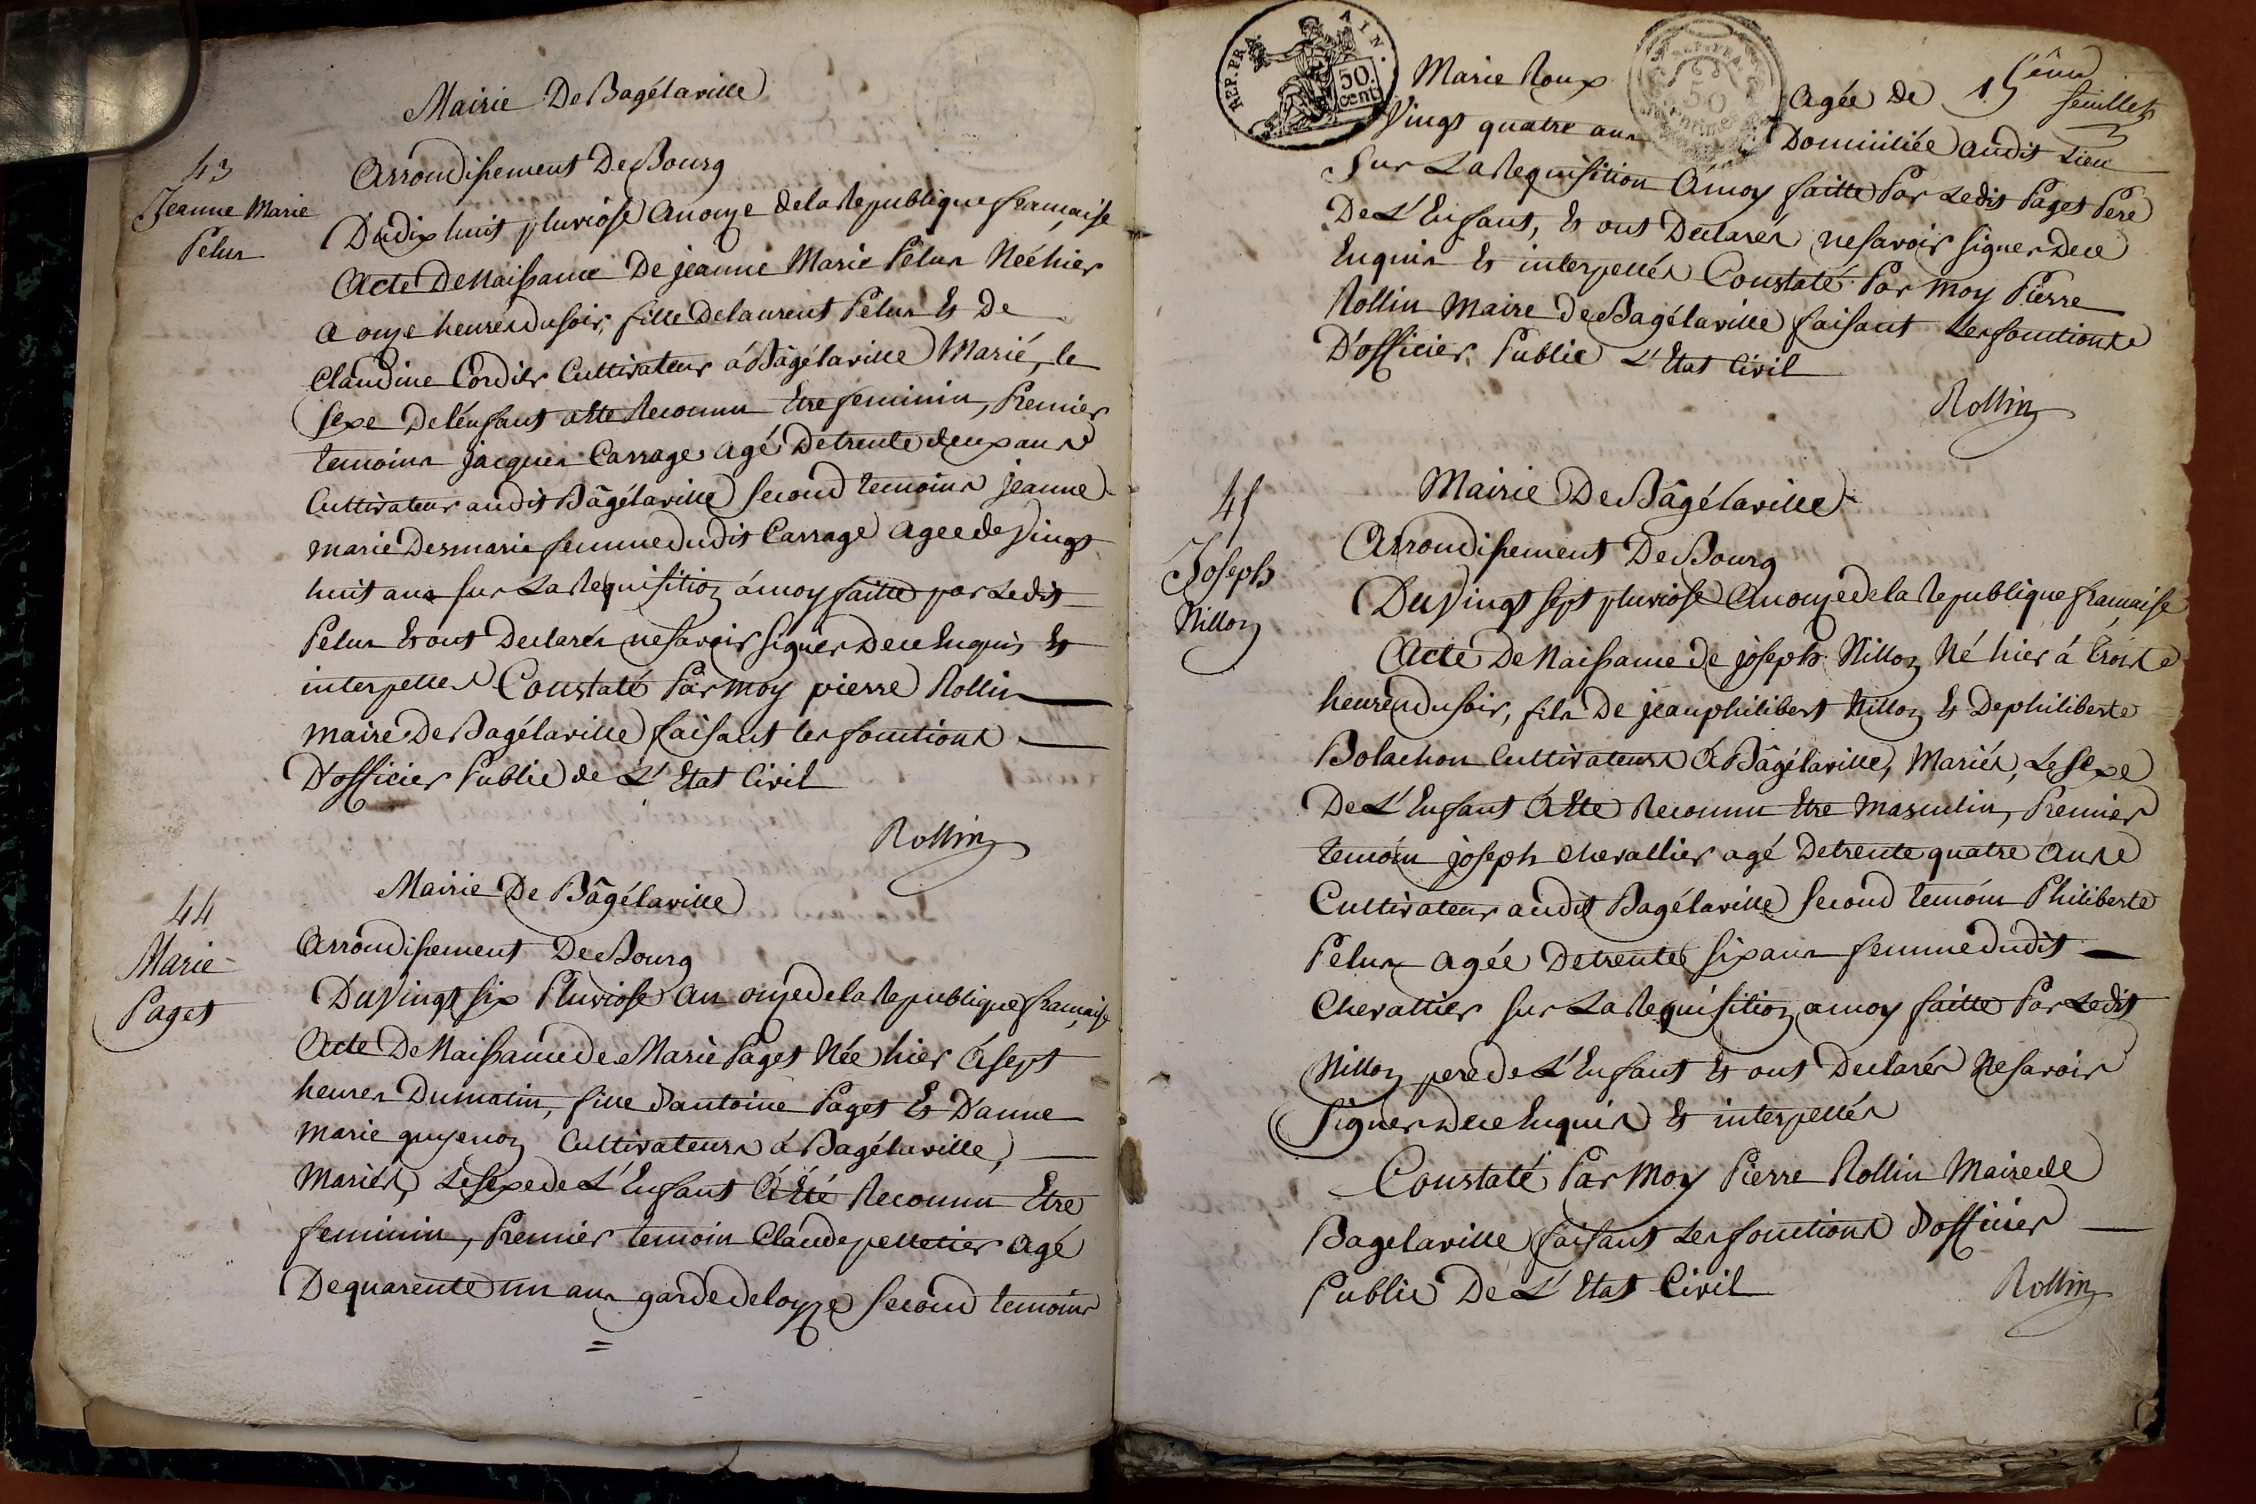 Mairie De Bagélaville
43
Jeanne Marie
Pelus
Arrondissement De Bourg
Du dix huit pluviose an onze de la Republique française
Acte De Naissance De jeanne Marie Pelus Née hier
a onze heures du soir, fille de laurent Pelus et De
Claudine Cordier Cultivateur á Bâgélaville Marié, le
sexe De l'enfant a ete Reconnu Etre feminin, Premier
temoins jacques Carrage agé De trente deux ans
Cultivateur audit Bâgélaville second temoins jeanne
marie Desmarie femme dudit Carrage agee de Vingt
huit ans sur La Requisition á moy faitte par Ledit
Pelus Et ont Declarés ne savoir signer De ce Enquis Et
interpelles Constaté Par moy pierre Rollin
maire De Bagélaville faisant les fonctions
D'officier Public de L'Etat Civil
Rollin
Mairie De Bâgélaville
44
Marie
Paget
Arrondissement De Bourg
Du Vingt six Pluviose an onze de la Republique française
Acte De Naissance de Marie Paget Née hier á sept
heures Du matin, fille d'antoine Paget Et D'anne
marie guyenon Cultivateurs á Bagélaville,
Mariés, Le sexe de L'Enfant á Eté Reconnu Etre
feminin, Premier temoin Claude pelletier agé
De quarente un ans garde de loyze second temoins
REP. FRA. AIN.
50. cent.
15ême feuillet
Marie Roux Agée De
Vingt quatre ans Domiciliée audit Lieu
Sur La Requisition á moy faitte Par Ledit Paget Pere
De L'Enfant, Et ont Declarés ne savoir signer De ce
Enquis Et interpellés Constaté Par Moy Pierre
Rollin Maire De Bagélaville faisant Les fonctions
D'officier Public L'Etat Civil
Rollin
Mairie De Bâgélaville
45
Joseph
Nillon
Arrondissement De Bourg
Du Vingt sept pluviose An onze de la Republique française
Acte De Naissance de joseph Nillon Né hier á trois
heures du soir, fils De jean philibert Nillon Et De philiberte
Bolachon Cultivateurs á Bâgélaville, Mariés, Le sexe
De L'Enfant á Ete Reconnu Etre Masculin, Premier
temoin joseph chevallier agé De trente quatre Ans
Cultivateur audit Bagélaville second temoin Philiberte
Pelus agée De trente six ans femme dudit
Chevallier sur La Requisition a moy faitte Par Ledit
Nillon pere de L'Enfant Et ont Declarés Ne savoir
Signer De ce Enquis Et interpellés
Constaté Par Moy Pierre Rollin Maire de
Bagelaville faisant Les fonctions D'officier
Public De L'Etat Civil
Rollin